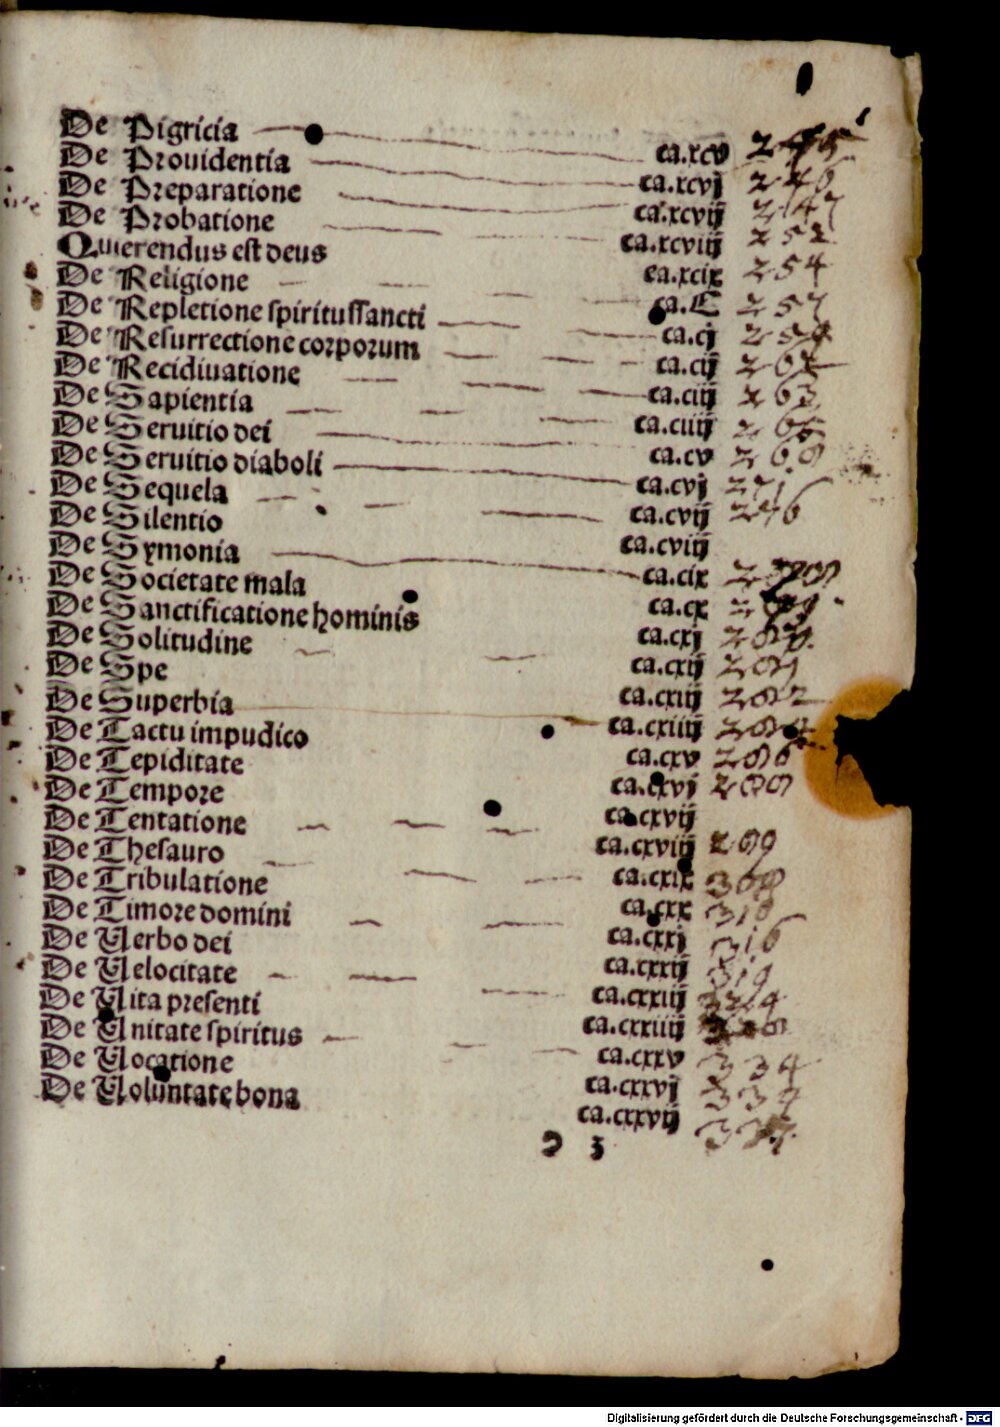 De Pigricia ca.xcv 245
De Prouidentia ca.xcvj 246
De Preparatione ca.xcvij 247
De Probatione ca.xcviij 252
Querendus est deus ca.xcix 254
De Religione ca.C 257
De Repletione spiritussancti ca.cj
De Resurrectione corporum ca.cij
De Recidiuatione ca.ciij 263
De Sapientia ca.ciiij
De Seruitio dei ca.cv 269
De Seruitio diaboli ca.cvj 271
De Sequela ca.cvij 276
De Silentio ca.cviij
De Symonia ca.cix
De Societate mala ca.cx
De Sanctificatione hominis ca.cxj
De Solitudine ca.cxij
De Spe ca.cxiij
De Superbia ca.cxiiij
De Tactu impudico ca.cxv
De Tepiditate ca.cxvj
De Tempore ca.cxvij
De Tentatione ca.cxviij 299
De Thesauro ca.cxix
De Tribulatione ca.cxx 310
De Timore domini ca.cxxj 316
De Uerbo dei ca.cxxij 319
De Uelocitate ca.cxxiij 324
De Uita presenti ca.cxxiiij
De Unitate spiritus ca.cxxv 334
De Uocatione ca.cxxvj 334
De Uoluntate bona ca.cxxvij
Digitalisierung gefördert durch die Deutsche Forschungsgemeinschaft - DFG